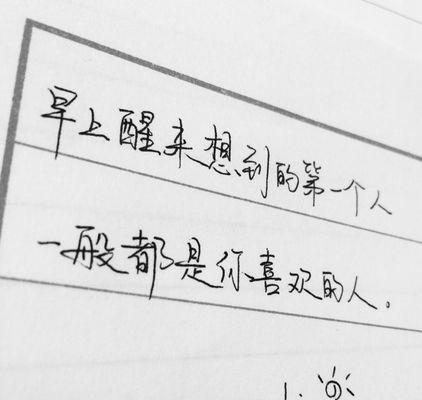 早上醒来想到的第一个人
一般都是你喜欢的人。